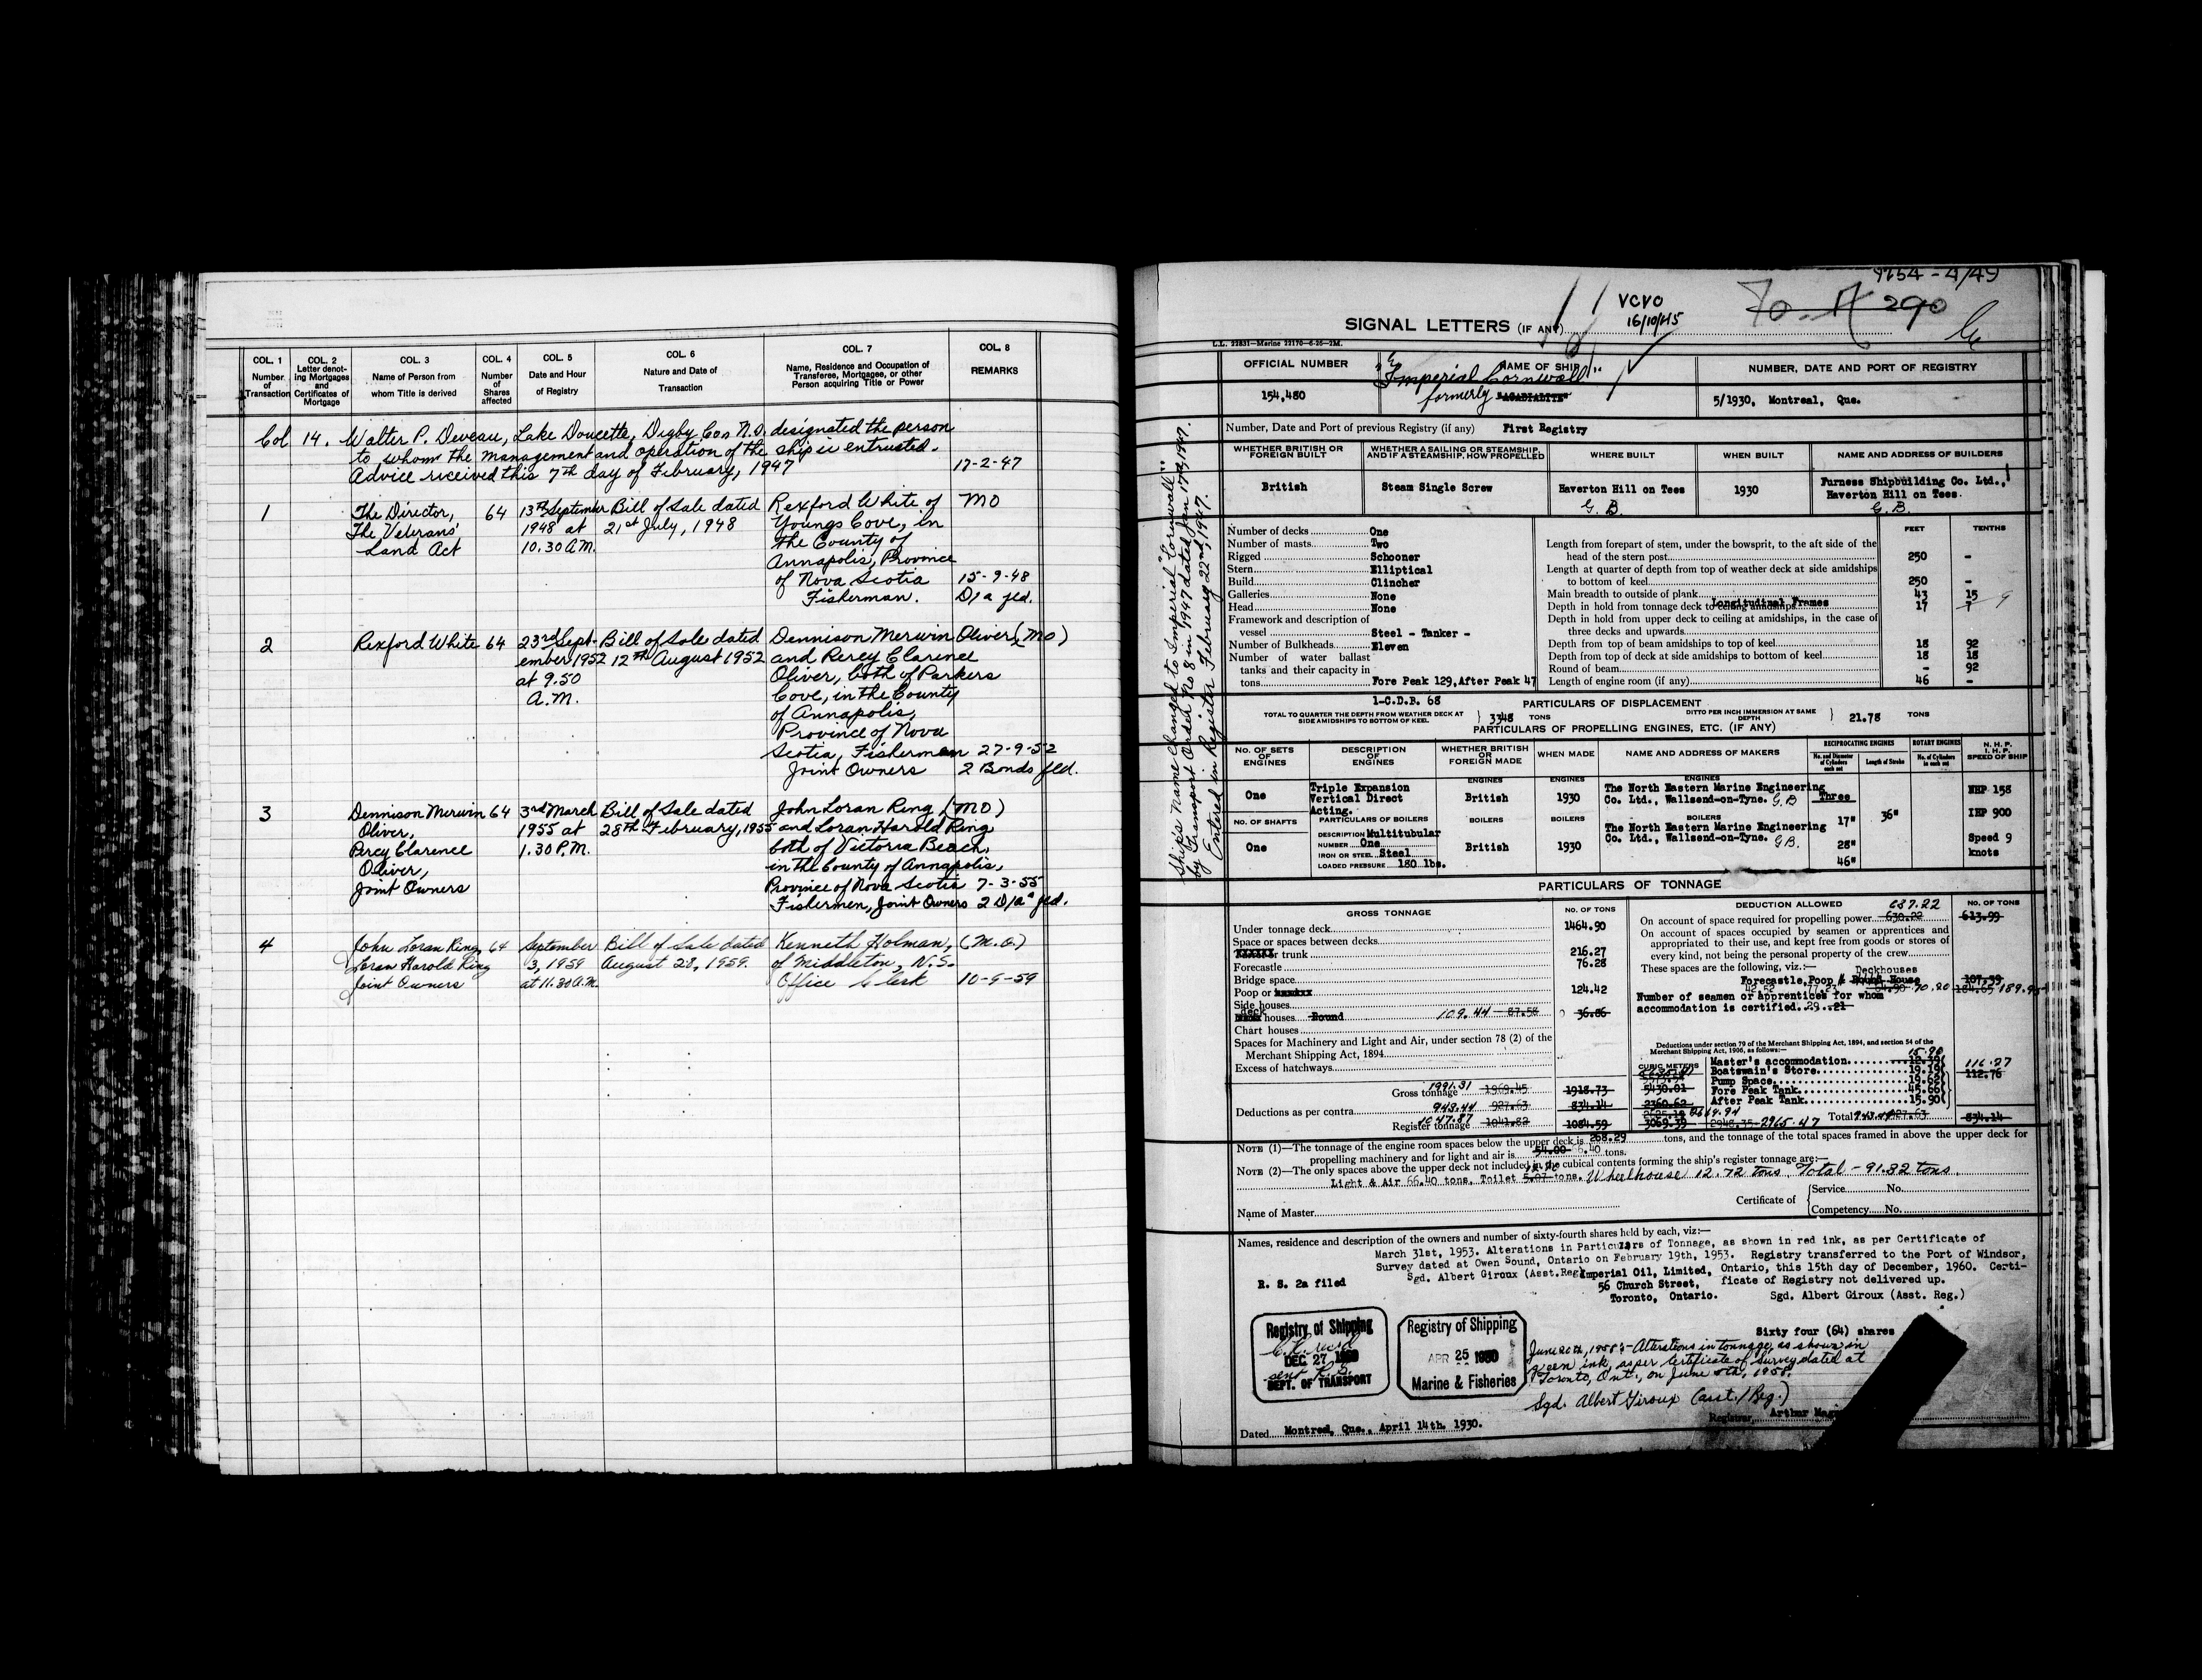 COL. 1 COL. 2 COL. 3 COL. 4 COL. 5 COL. 6 COL. 7 COL. 8
Number of Transaction
Letter denoting Mortgages and Certificates of Mortgage
Name of Person from whom Title is derived
Number of Shares affected
Date and Hour of Registry
Nature and Date of Transaction
Name, Residence and Occupation of Transferee, Mortgagee, or other Person acquiring Title or Power
REMARKS
Col 14. Walter P. Deveau, Lake Doucette, Digby Co. N.S. designated the person
to whom the management and operation of the ship is entrusted.
Advice received this 7th day of February, 1947 17-2-47
1 The Director, 64 13th September Bill of Sale dated Rexford White of MO
The Veterans' 1948 at 21st July, 1948 Youngs Cove, in
Land Act 10.30 A.M. the County of
Annapolis, Province
of Nova Scotia 15-9-48
Fisherman. D/a fld.
2 Rexford White 64 23rd Sept- Bill of Sale dated Dennison Merwin Oliver (MO)
ember 1952 12th August 1952 and Percy Clarence
at 9.50 Oliver, both of Parkers
A.M. Cove, in the County
of Annapolis,
Province of Nova
Scotia, Fishermen 27-9-52
Joint Owners 2 Bonds fld.
3 Dennison Merwin 64 3rd March Bill of Sale dated John Loran Ring (MO)
Oliver, 1955 at 28th February, 1955 and Loran Harold Ring
Percy Clarence 1.30 P.M. both of Victoria Beach,
Oliver, in the County of Annapolis,
Joint Owners Province of Nova Scotia 7-3-55
Fishermen, Joint Owners 2 D/a fld.
4 John Loran Ring, 64 September Bill of Sale dated Kenneth Holman, (M.O.)
Loran Harold Ring 3, 1959 August 28, 1959. of Middleton, N.S.
Joint Owners at 11.30 A.M. Office Clerk 10-9-59
9754-4/49
VCVO
SIGNAL LETTERS (IF ANY) 16/10/45
290
L.L. 22831—Marine 22170—6-25—2M.
OFFICIAL NUMBER NAME OF SHIP NUMBER, DATE AND PORT OF REGISTRY
"Imperial Cornwall"
154,480 formerly "ACADIALITE" 5/1930, Montreal, Que.
Number, Date and Port of previous Registry (if any) First Registry
WHETHER BRITISH OR FOREIGN BUILT
WHETHER A SAILING OR STEAMSHIP, AND IF A STEAMSHIP, HOW PROPELLED
WHERE BUILT
WHEN BUILT
NAME AND ADDRESS OF BUILDERS
British Steam Single Screw Haverton Hill on Tees 1930 Furness Shipbuilding Co. Ltd.,
G. B. Haverton Hill on Tees.
G. B.
Ship's Name Changed to Imperial Cornwall"
by Transport Order No 8 in 1947 dated Jan 17th, 1947.
Entered in Register February 22nd, 1947.
Number of decks One
Number of masts Two
Rigged Schooner
Stern Elliptical
Build Clincher
Galleries None
Head None
Framework and description of
vessel Steel - Tanker -
Number of Bulkheads Eleven
Number of water ballast
tanks and their capacity in
tons Fore Peak 129, After Peak 47
1-C.D.B. 68
FEET TENTHS
Length from forepart of stem, under the bowsprit, to the aft side of the
head of the stern post 250 -
Length at quarter of depth from top of weather deck at side amidships
to bottom of keel 250 -
Main breadth to outside of plank 43 15
Longitudinal Frames
Depth in hold from tonnage deck to ceiling amidships 17 9
Depth in hold from upper deck to ceiling at amidships, in the case of
three decks and upwards
Depth from top of beam amidships to top of keel 18 92
Depth from top of deck at side amidships to bottom of keel 18 18
Round of beam - 92
Length of engine room (if any) 46 -
PARTICULARS OF DISPLACEMENT
TOTAL TO QUARTER THE DEPTH FROM WEATHER DECK AT SIDE AMIDSHIPS TO BOTTOM OF KEEL 3348 TONS DITTO PER INCH IMMERSION AT SAME DEPTH 21.78 TONS
PARTICULARS OF PROPELLING ENGINES, ETC. (IF ANY)
NO. OF SETS OF ENGINES
DESCRIPTION OF ENGINES
WHETHER BRITISH OR FOREIGN MADE
WHEN MADE
NAME AND ADDRESS OF MAKERS
RECIPROCATING ENGINES
No. and Diameter of Cylinders each set
Length of Stroke
ROTARY ENGINES
No. of Cylinders in each set
N. H. P. I. H. P. SPEED OF SHIP
ENGINES ENGINES ENGINES
One Triple Expansion Vertical Direct Acting. British 1930 The North Eastern Marine Engineering Co. Ltd., Wallsend-on-Tyne. G.B Three 36" NHP 158
NO. OF SHAFTS PARTICULARS OF BOILERS BOILERS BOILERS BOILERS 17" IHP 900
One DESCRIPTION Multitubular British 1930 The North Eastern Marine Engineering Co. Ltd., Wallsend-on-Tyne. G.B. 28" Speed 9
NUMBER One 46" knots
IRON OR STEEL Steel
LOADED PRESSURE 180 lbs.
PARTICULARS OF TONNAGE
GROSS TONNAGE NO. OF TONS
Under tonnage deck 1464.90
Space or spaces between decks
or trunk 216.27
Forecastle 76.28
Bridge space
Poop or 124.42
Side houses
deck houses Round 109.44 87.58 36.86
Chart houses
Spaces for Machinery and Light and Air, under section 78 (2) of the
Merchant Shipping Act, 1894
Excess of hatchways
Gross tonnage 1991.31 1969.45 1918.73
Deductions as per contra 943.44 927.63 834.14
Register tonnage 1047.87 1041.82 1084.59
CUBIC METERS
5430.01
2360.62
3069.39
DEDUCTION ALLOWED NO. OF TONS
On account of space required for propelling power 637.22 630.22 613.99
On account of spaces occupied by seamen or apprentices and
appropriated to their use, and kept free from goods or stores of
every kind, not being the personal property of the crew
These spaces are the following, viz:—
Deckhouses
Forecastle, Poop & Round House 107.39
70.20 184.65 189.95
Number of seamen or apprentices for whom
accommodation is certified 29 21
Deductions under section 79 of the Merchant Shipping Act, 1894, and section 54 of the
Merchant Shipping Act, 1906, as follows:—
Master's accommodation 15.90 12.39
Boatswain's Store 19.19 116.27
Pump Space 19.62 112.76
Fore Peak Tank 45.66
After Peak Tank 15.90
Total 943.44 927.63 834.14
2614.94 2948.35 2965.47
NOTE (1)—The tonnage of the engine room spaces below the upper deck is 268.29 tons, and the tonnage of the total spaces framed in above the upper deck for
propelling machinery and for light and air is 54.00 66.40 tons.
NOTE (2)—The only spaces above the upper deck not included in the cubical contents forming the ship's register tonnage are:—
Light & Air 66.40 tons, Toilet 5.07 tons. Wheelhouse 12.72 tons, Total - 91.82 tons
Name of Master
Certificate of Service No.
Competency No.
Names, residence and description of the owners and number of sixty-fourth shares held by each, viz:—
March 31st, 1953. Alterations in Particulars of Tonnage, as shown in red ink, as per Certificate of
Survey dated at Owen Sound, Ontario on February 19th, 1953. Registry transferred to the Port of Windsor,
Sgd. Albert Giroux (Asst. Reg Ontario, this 15th day of December, 1960. Certi-
ficate of Registry not delivered up.
Sgd. Albert Giroux (Asst. Reg.)
R. S. 2a filed
Imperial Oil, Limited,
56 Church Street,
Toronto, Ontario.
Sixty four (64) shares
Registry of Shipping
DEC 27
DEPT. OF TRANSPORT
Registry of Shipping
APR 25 1930
Marine & Fisheries
June 20th, 1958:- Alterations in tonnage, as shown in
green ink, as per Certificate of Survey dated at
Toronto, Ont., on June 5th, 1958.
Sgd. Albert Giroux (asst./Reg.)
Registrar Arthur
Dated Montreal, Que., April 14th. 1930.